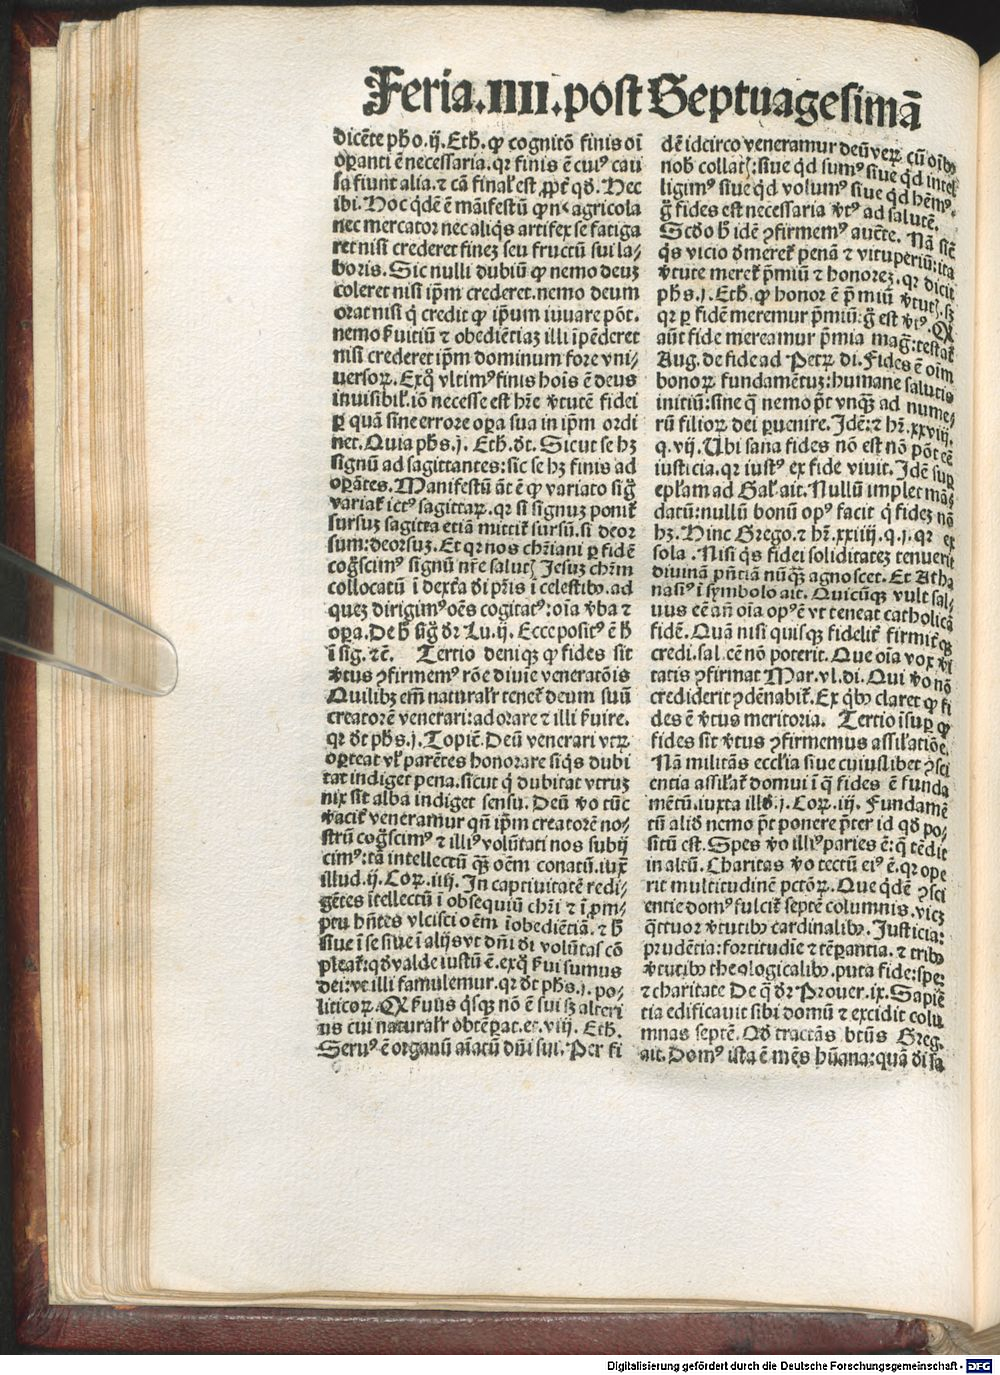 Feria.IIII.post Septuagesimā
dicēte pħo.ij.Eth. ꝙ cognitō finis oī
oꝑanti ē necessaria.qr finis ē cuiꝰ cau
sa fiunt alia.⁊ cā final' est ꝓpt' qđ. Hec
ibi. Hoc qđē ē māifestū ꝙ nec agricola
nec mercator nec aliqs artifex se fatiga
ret nisi crederet finez seu fructū sui la⸗
boris. Sic nulli dubiū ꝙ nemo deuz
coleret nisi ip̄m crederet.nemo deum
orat nisi q̇ credit ꝙ ip̄um iuuare pōt.
nemo ẜuitiū ⁊ obediētiaz illi īpēderet
nisi crederet ip̄m dominum fore vni⸗
uersoꝝ. Exq̊ vltimꝰ finis hoīs ē deus
inuisibil'.iō necesse est hr̄e v̓tutē fidei
ꝑ quā sine errore oꝑa sua in ip̄m ordi
net. Quia pħs.j. Eth. đt. Sicut se hꝫ
signū ad sagittantes:sic se hꝫ finis ad
oꝑātes. Manifestū āt ē ꝙ variato sig̊
variat̓ ictꝰ sagittaꝝ. qr si signuz ponit̓
sursuz sagitta etiā mittit̓ sursū. si deor
sum:deorsuz. Et qr nos chr̄iani ꝑ fidē
cog̊scimꝰ signū nr̄e salutꝭ Jesuz chr̄m
collocatū ī dext̓a đi pr̄is ī celestibꝰ. ad
quez dirigimꝰ oēs cogitatꝰ:oīa v̓ba ⁊
oꝑa. De ħ sig̊ đr Lu.ij. Ecce positꝰ ē ħ
ī sig. ⁊c̄. Tertio deniqꝫ ꝙ fides sit
v̓tus ꝯfirmemꝰ rōe diuīe veneratōis
Quilibꝫ em̄ naturalr̄ tenet̓ deum suū
creatorē venerari:adorare ⁊ illi ẜuire.
qr đt pħs.j. Topic̄. Deū venerari vtꝝ
oꝑteat vl' parētes honorare siqs dubi
tat indiget pena.sicut q̇ dubitat vtruz
nix sit alba indiget sensu. Deū v̓o tūc
v̓acit̓ veneramur qn̄ ip̄m creatorē no⸗
strū cog̊scimꝰ ⁊ illiꝰ volūtati nos subij
cimꝰ:tā intellectū qꝫ̄ oēm conatū.iux̄
illud.ij. Coꝝ.iiij. In captiuitatē redi⸗
gētes ītellectū ī obsequiū chr̄i ⁊ ī ꝓm⸗
ptu hn̄tes vlcisci oēm īobediētiā. ⁊ ħ
siue ī se siue ī alijs vt dn̄i đi volūtas cō
pleat̓:qđ valde iustū ē.exq̊ ẜui sumus
dei:vt illi famulemur.qr đt pħs.j. po⸗
liticoꝝ. Qꝫ ẜuus qsqꝫ nō ē sui sꝫ alteri
us cui naturalr̄ obtēꝑat.et.viij. Eth.
Seruꝰ ē organū aīatū dn̄i sui. Per fi
dē idcirco veneramur deū veꝝ cū oībꝰ
nob̄ collatꝭ:siue qđ sumꝰ siue qđ intel
ligimꝰ siue qđ volumꝰ siue qđ hēmꝰ.
g̊ fides est necessaria v̓tꝰ ad salutē.
Scđo ħ idē ꝯfirmemꝰ auc̄te. Nā sic̄
qs vicio đmeret̓ penā ⁊ vituperiū:ita
v̓tute meret̓ p̄miū ⁊ honorez.qr dicit
pħs.j. Eth. ꝙ honor ē p̄miū v̓tutꝭ.sꝫ
qr ꝑ fidē meremur p̄miū:g̊ est v̓tꝰ. Qꝫ
aūt fide mereamur p̄mia mag̊:testat̓
Aug. de fide ad Petꝝ di. Fides ē oīm
bonoꝝ fundamētuz:humane salutis
initiū:sine q̄ nemo pt̄ vnqꝫ̄ ad nume⸗
rū filioꝝ dei ꝑuenire. Idē:⁊ hr̄.xxviij.
q.vij. Ubi sana fides nō est nō pōt eē
iusticia.qr iustꝰ ex fide viuit. Idē sup
epl'am ad Gal' ait. Nullū implet mā
datū:nullū bonū opꝰ facit q̇ fidez nō
hꝫ. Hinc Grego.⁊ hr̄.xxiiij.q.j.qr ex
sola. Nisi qs fidei soliditatez tenuerit
diuinā pn̄tiā nūqꝫ̄ agnoscet. Et Atha
nasiꝰ ī symbolo ait. Quicūqꝫ vult sal⸗
uus eē an̄ oīa opꝰ ē vt teneat catholicā
fidē. Quā nisi quisqꝫ fidelit̓ firmit̓qꝫ
credi.sal.eē nō poterit. Que oīa vox v̓i
tatis ꝯfirmat Mar.vl.di. Qui v̓o nō
crediderit ꝯdēnabit̓. Ex qbꝰ claret ꝙ fi
des ē v̓tus meritoria. Tertio īsuꝑ ꝙ
fides sit v̓tus ꝯfirmemus assil'atiōe.
Nā militās eccl'ia siue cuiuslibet ꝯsci
entia assil'at̓ domui ī q̄ fides ē funda
mētū.iuxta illđ.j. Coꝝ.iij. Fundamē
tū aliđ nemo pt̄ ponere p̄ter id qđ po⸗
sitū est. Spes v̓o illiꝰ paries ē:q̄ tēdit
in altū. Charitas v̓o tectū eiꝰ ē.qr ope
rit multitudinē pctōꝝ. Que qđē ꝯsci
entie domꝰ fulcit̓ septē columnis.vicꝫ
q̄ttuor v̓tutibꝰ cardinalibꝰ. Justicia:
prudētia:fortitudīe ⁊ tēꝑantia. ⁊ tribꝰ
v̓tutibꝰ theologicalibꝰ.puta fide:spe:
⁊ charitate De q̄ đr Prouer.ix. Sapiē
tia edificauit sibi domū ⁊ excidit colu
mnas septē. Qđ tractās btūs Greg.
ait. Domꝰ ista ē mēs hūana:quā đi sa
Digitalisierung gefördert durch die Deutsche Forschungsgemeinschaft - DFG